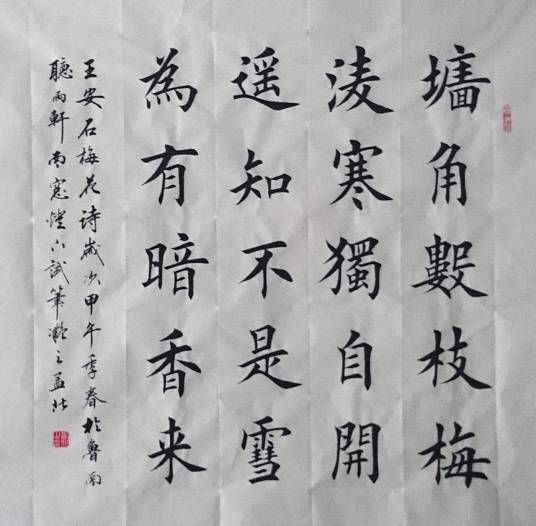 墙角數枝梅
淩寒獨自開
遥知不是雪
為有暗香来
王安石梅花诗歲次甲午季春於魯南
聽雨軒南窓燈下試筆